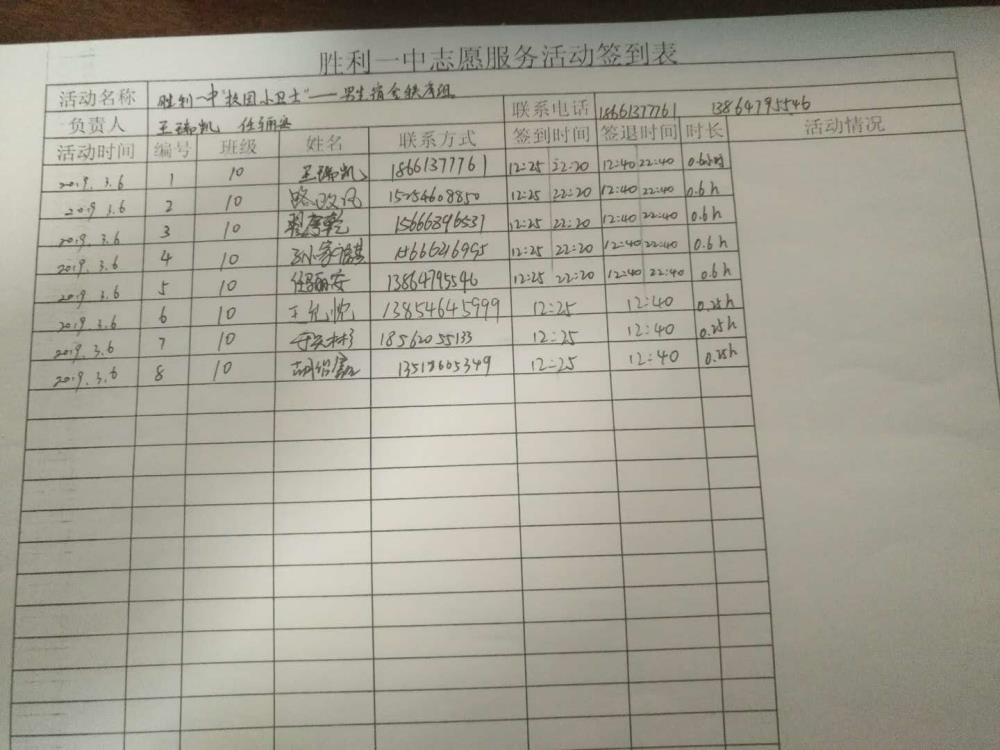 胜利一中志愿服务活动签到表
活动名称 胜利一中"校园小卫士"——男生宿舍秩序组
负责人 王瑞凯 任俪安 联系电话 18661377761 13864795546
活动时间 编号 班级 姓名 联系方式 签到时间 签退时间 时长 活动情况
2019.3.6 1 10 王瑞凯 18661377761 12:25 22:20 12:40 22:40 0.6小时
2019.3.6 2 10 15254608850 12:25 22:20 12:40 22:40 0.6h
2019.3.6 3 10 15666896531 12:25 22:20 12:40 22:40 0.6h
2019.3.6 4 10 12:25 22:20 12:40 22:40 0.6h
2019.3.6 5 10 任俪安 13864795546 12:25 22:20 12:40 22:40 0.6h
2019.3.6 6 10 13854645999 12:25 12:40 0.25h
2019.3.6 7 10 18562055133 12:25 12:40 0.25h
2019.3.6 8 10 13518605349 12:25 12:40 0.25h